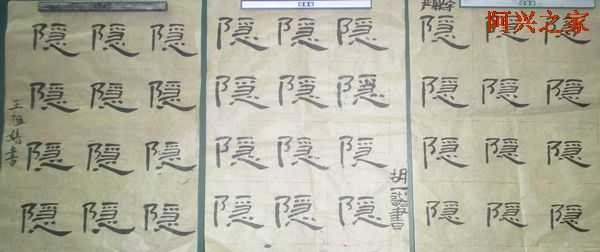 阿兴之家
隐隐隐
隐隐隐
隐隐隐
隐隐隐
王書
隐隐隐
隐隐隐
隐隐隐
隐隐隐
胡一書
隐隐隐
隐隐隐
隐隐隐
隐隐隐